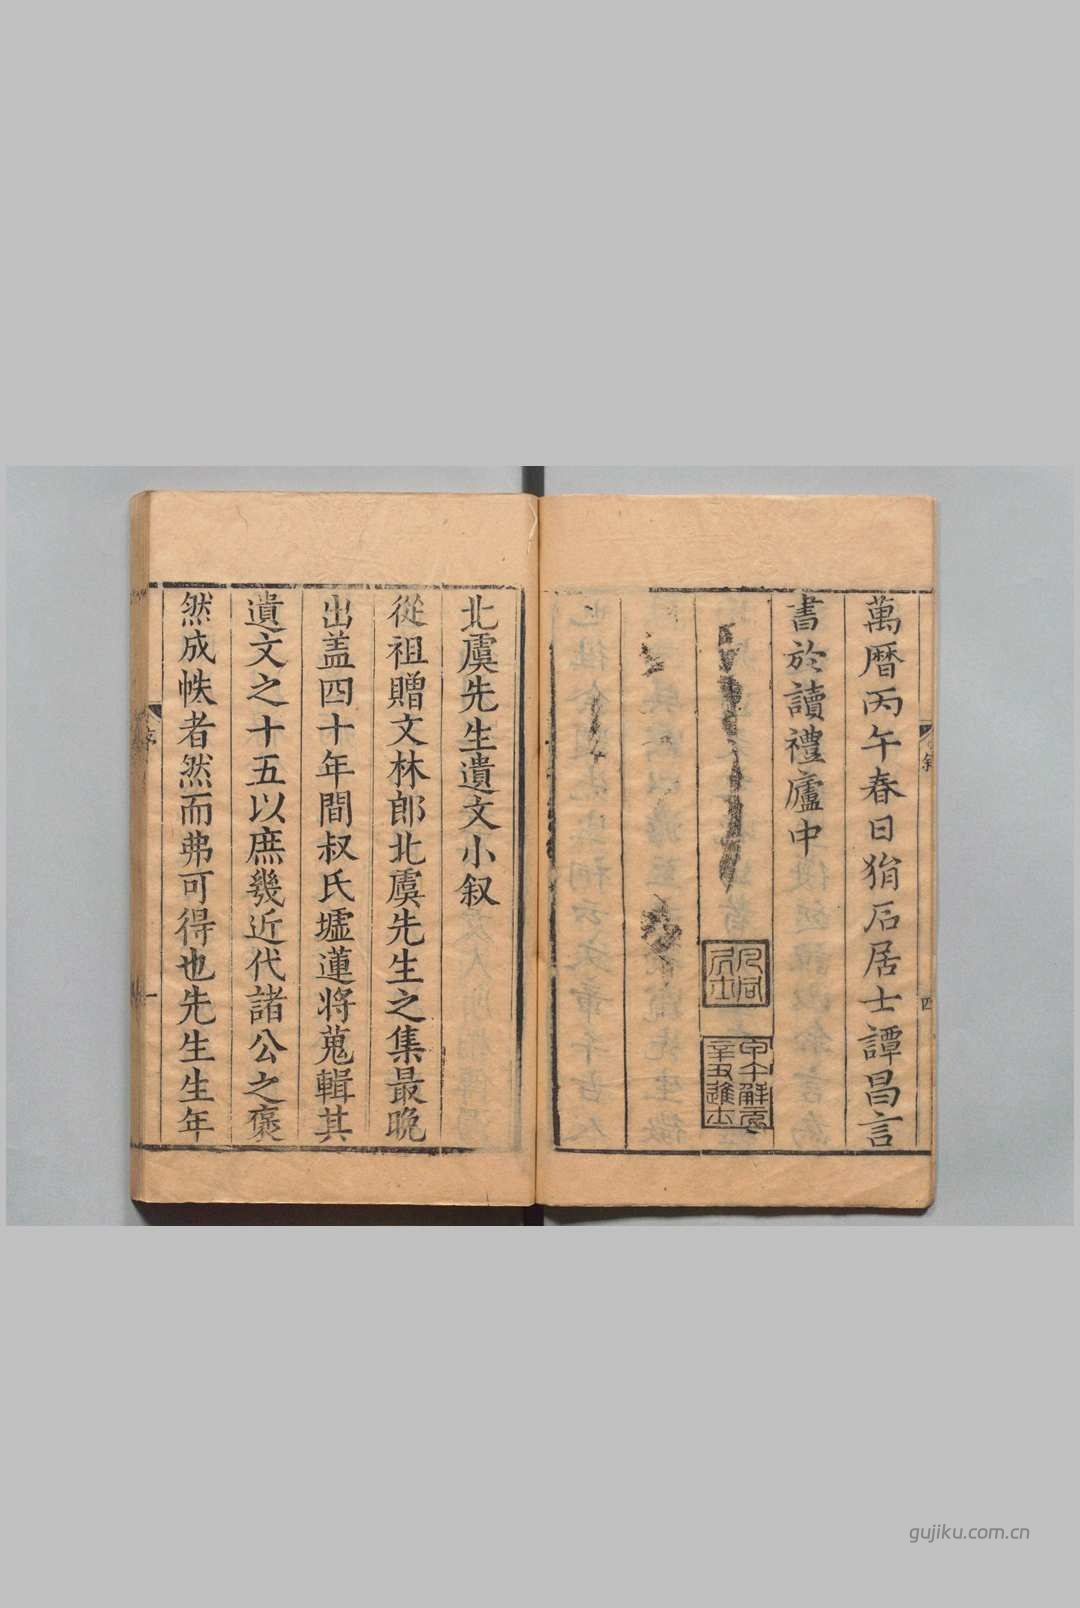 萬曆丙午春日狷石居士譚昌言
書於讀禮廬中
甲午解元
辛丑進士
叙
四
北虞先生遺文小叙
從祖贈文林郎北虞先生之集最晚
出盖四十年間叔氏墟蓮將蒐輯其
遺文之十五以庶幾近代諸公之褒
然成帙者然而弗可得也先生生年
序
一
gujiku.com.cn